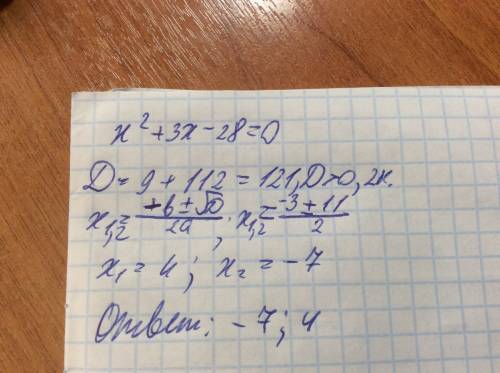 x² + 3x - 28 = 0
D = 9 + 112 = 121, D>0, 2к.
x₁,₂ = (-b ± √D)/2a ; x₁,₂ = (-3 ± 11)/2
x₁ = 4 ; x₂ = -7
Ответ: -7; 4